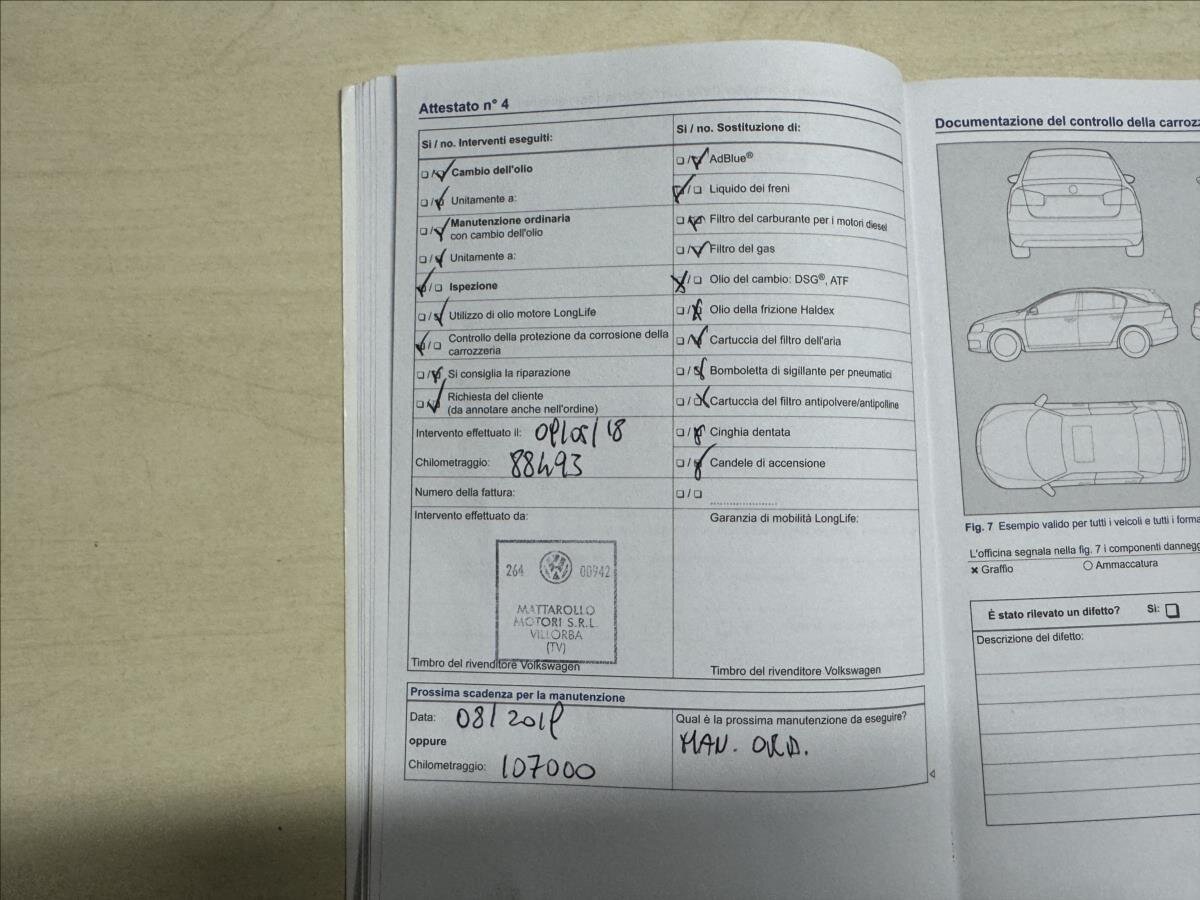 Attestato n° 4
Si / no. Interventi eseguiti:
Cambio dell'olio
Unitamente a:
Manutenzione ordinaria
con cambio dell'olio
Unitamente a:
Ispezione
Utilizzo di olio motore LongLife
Controllo della protezione da corrosione della
carrozzeria
Si consiglia la riparazione
Richiesta del cliente
(da annotare anche nell'ordine)
Intervento effettuato il: 09/05/18
Chilometraggio: 88493
Numero della fattura:
Intervento effettuato da:
264 00942
MATTAROLLO
MOTORI S.R.L.
VILLORBA
(TV)
Timbro del rivenditore Volkswagen
Si / no. Sostituzione di:
AdBlue®
Liquido dei freni
Filtro del carburante per i motori diesel
Filtro del gas
Olio del cambio: DSG®, ATF
Olio della frizione Haldex
Cartuccia del filtro dell'aria
Bomboletta di sigillante per pneumatici
Cartuccia del filtro antipolvere/antipolline
Cinghia dentata
Candele di accensione
Garanzia di mobilità LongLife:
Timbro del rivenditore Volkswagen
Prossima scadenza per la manutenzione
Data: 08/2019
oppure
Chilometraggio: 107000
Qual è la prossima manutenzione da eseguire?
MAN. ORD.
Documentazione del controllo della
Fig. 7 Esempio valido per tutti i veicoli e tutti i
L'officina segnala nella fig. 7 i componenti
Graffio
Ammaccatura
È stato rilevato un difetto? Si:
Descrizione del difetto: